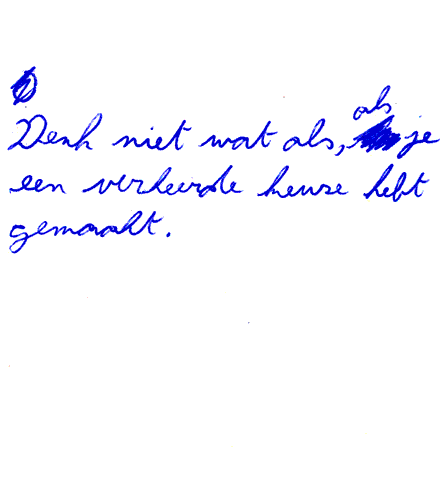 als
Denk niet wat als, je
een verkeerde keuze hebt
gemaakt.